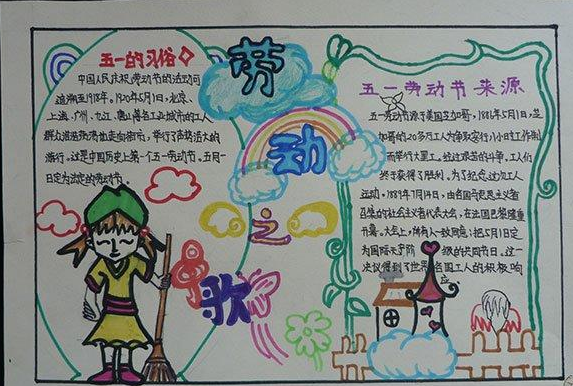 劳
动
之
歌
五一的习俗
中国人民庆祝劳动节的活动可
追溯至1918年。1920年5月1日，北京、
上海、广州、九江、唐山等各工业城市的工人
群众浩浩荡荡地走向街市，举行了声势浩大的
游行，这是中国历史上第一个五一劳动节。五月一
日定为法定的劳动节。
五一劳动节来源
五一劳动节源于美国芝加哥，1886年5月1日，芝
加哥的20多万工人为争取实行八小时工作制
而举行大罢工，经过艰苦的斗争，工人们
终于获得了胜利。为了纪念这次工人
运动，1889年7月14日，由各国马克思主义者
召集的社会主义者代表大会，在法国巴黎隆重
开幕。大会上，所有人一致同意：把5月1日定
为国际无产阶级的共同节日。这一
决议得到了世界各国工人的积极响
应